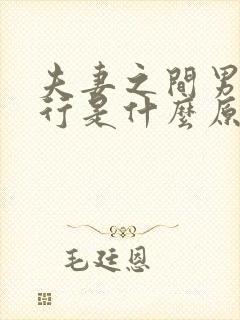 夫妻之間男
行是什麼原
毛廷恩